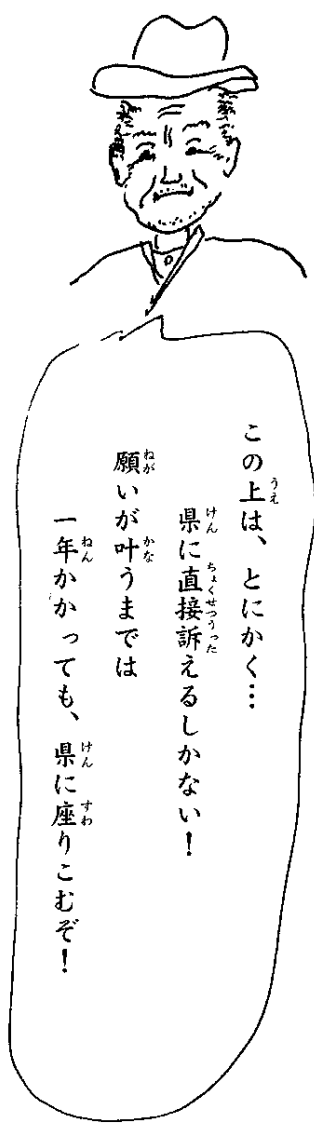 この上は、とにかく…
県に直接訴えるしかない！
願いが叶うまでは
一年かかっても、県に座りこむぞ！